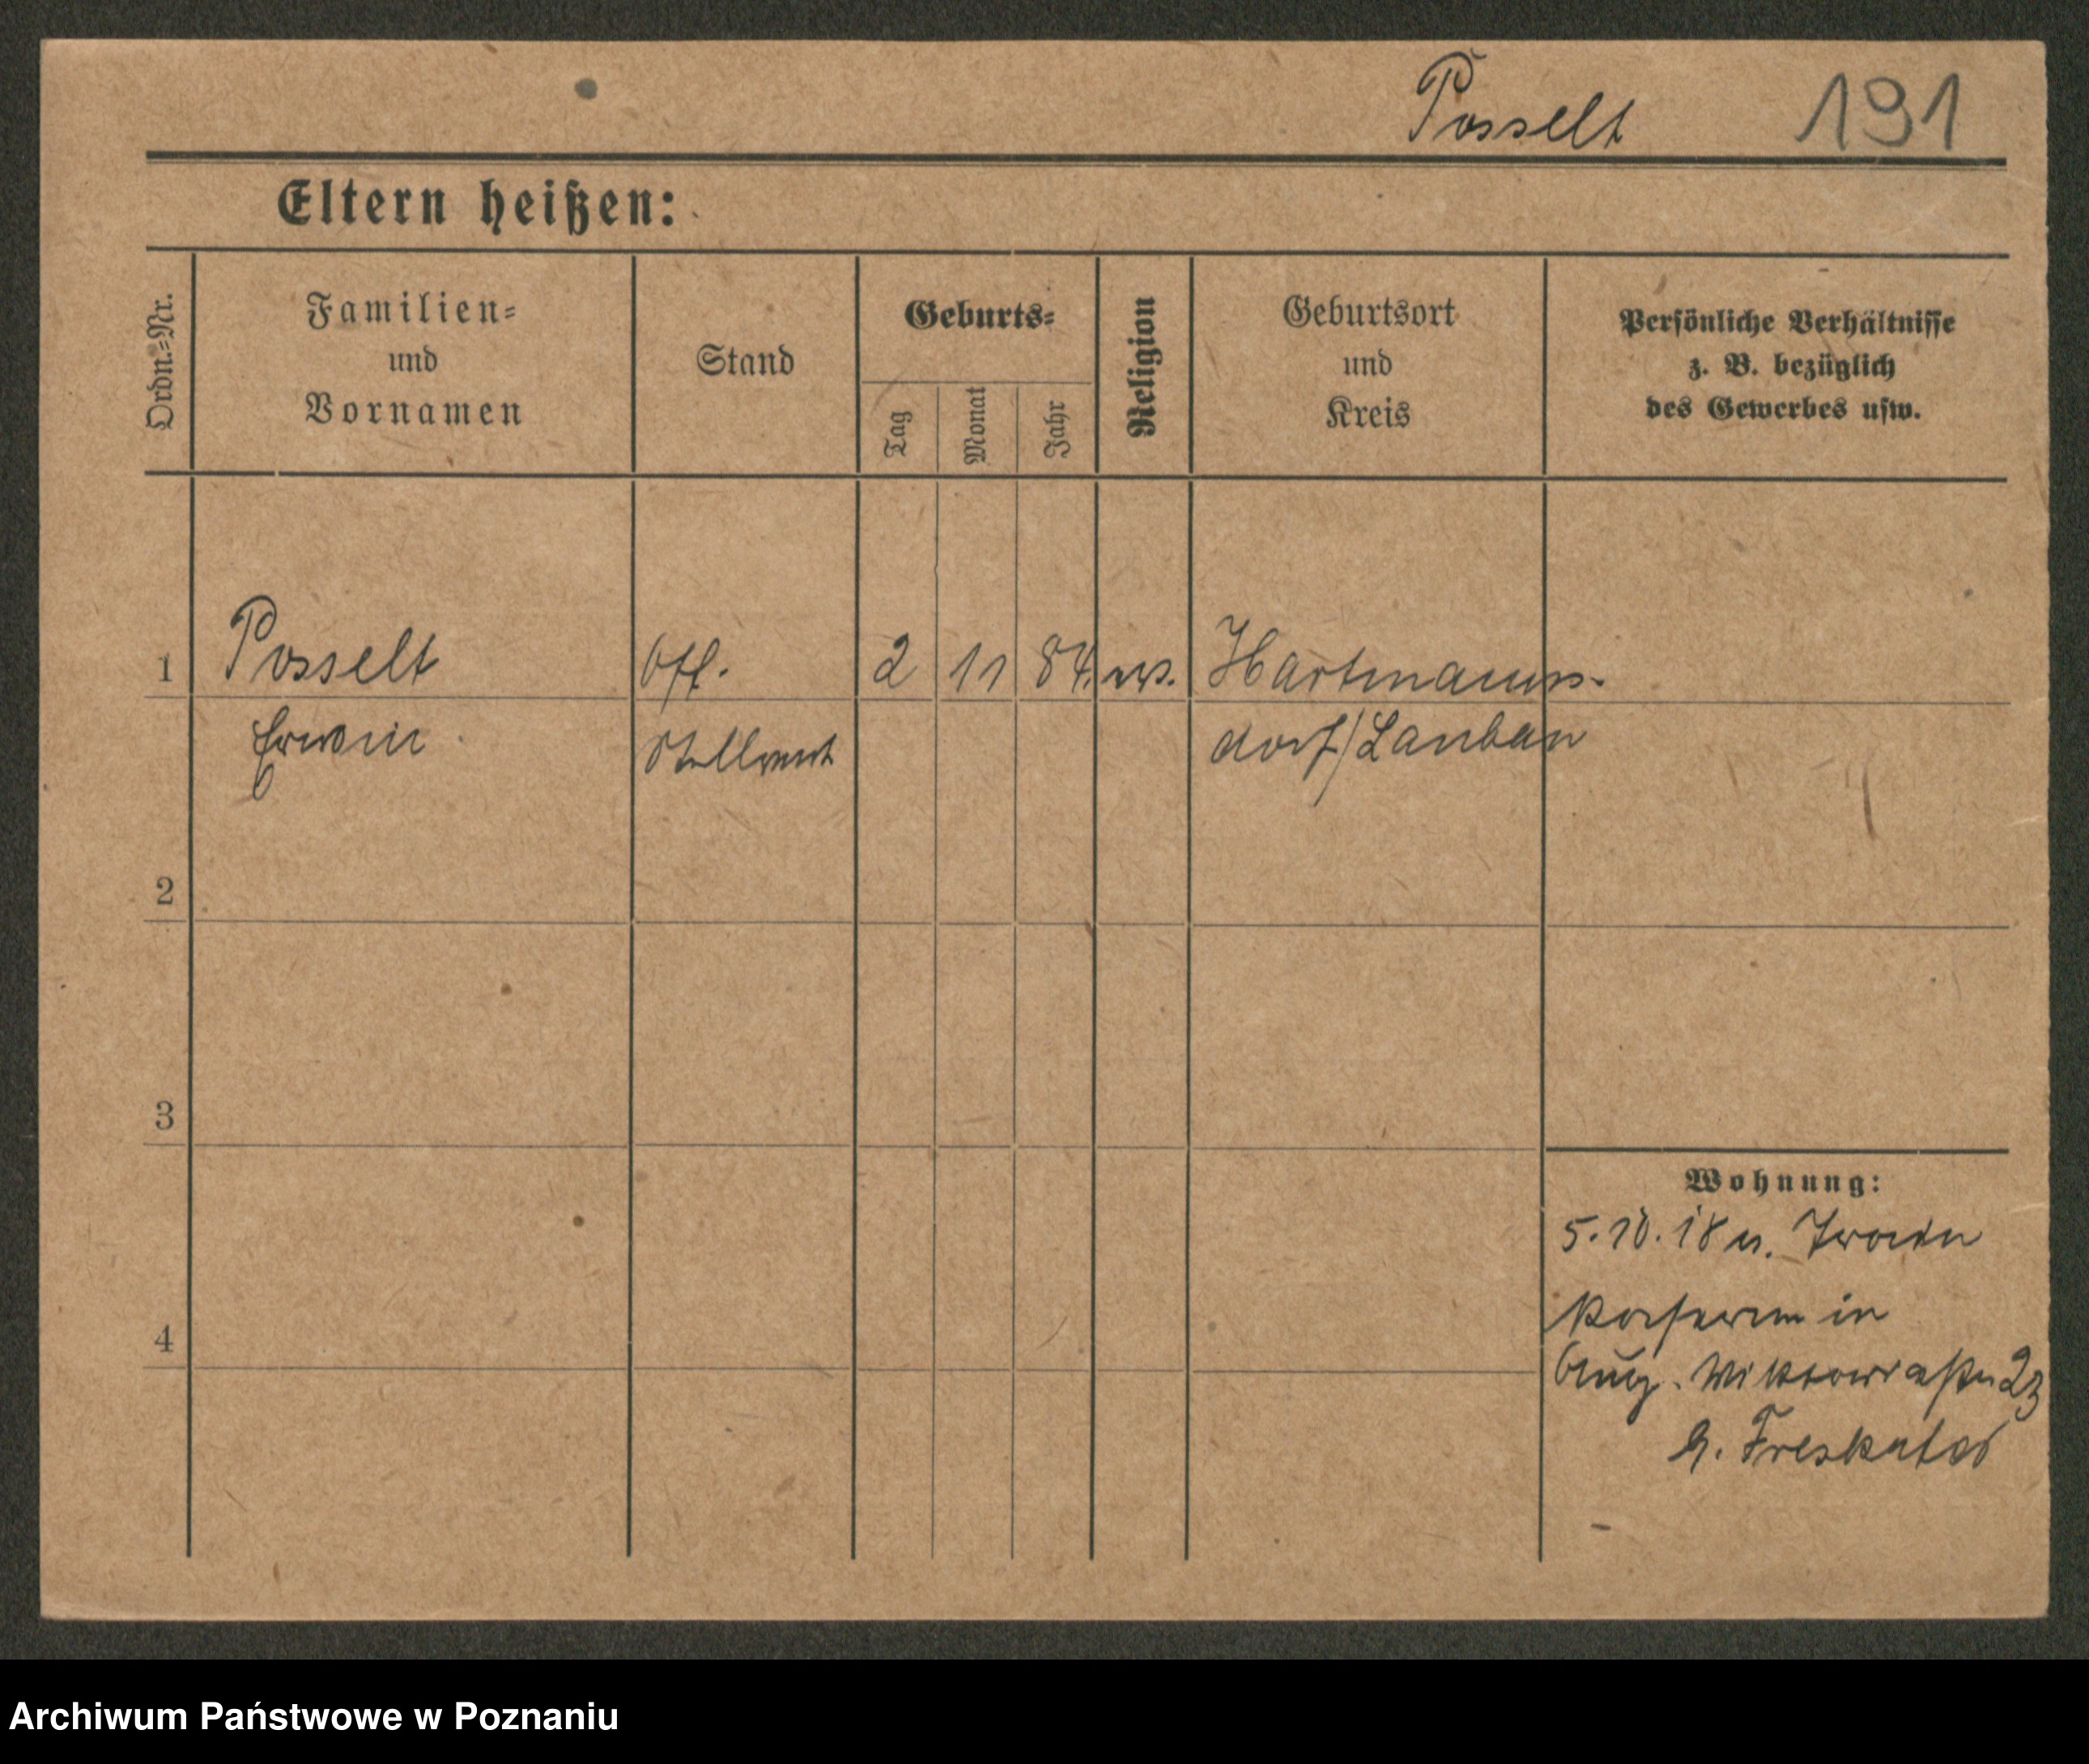 Posselt 191
Eltern heißen:
Ordn.=Nr.
Familien=
und
Vornamen
Stand
Geburts=
Tag
Monat
Jahr
Religion
Geburtsort
und
Kreis
Persönliche Verhältnisse
z. B. bezüglich
des Gewerbes usw.
1 Posselt Off. 2 11 84. Hartmanns-
Erwin Stellvert dorf/Lauban
2
3
4
Wohnung:
5. 10. 18 n.
in
Aug. 23
Archiwum Państwowe w Poznaniu